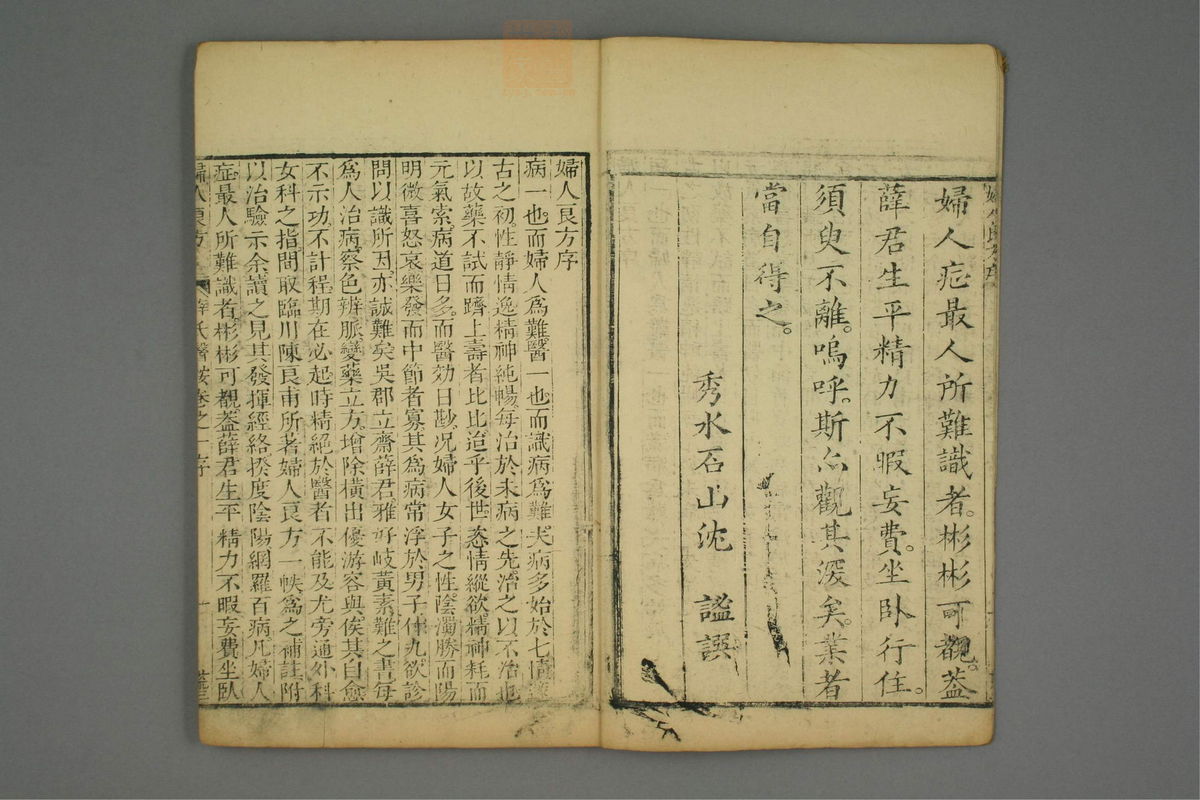 婦人症最人所難識者彬彬可觀蓋
薛君生平精力不暇妄費坐臥行住
須臾不離嗚呼斯亦觀其深矣業者
當自得之
秀水石山沈 謐譔
婦人良方序
病一也而婦人爲難醫一也而識病爲難夫病多始於七情
古之初性靜情逸精神純暢每治於未病之先治之以不治也
以故藥不試而躋上壽者比比迨乎後世恣情縱欲精神耗而
元氣索病道日多而醫效日尠况婦人女子之性陰濁勝而陽
明微喜怒哀樂發而中節者寡其爲病常浮於男子什九欲診
問以識所因亦誠難矣吳郡立齋薛君雅好岐黃素難之書每
爲人治病察色辨脈變藥立方增除橫出優游容與俟其自愈
不示功不計程期在必起時精絕於醫者不能及尤旁通外科
女科之指間取臨川陳良甫所著婦人良方一帙爲之補註附
以治驗示余讀之見其發揮經絡揆度陰陽網羅百病凡婦人
症最人所難識者彬彬可觀蓋薛君生平精力不暇妄費坐臥
婦人良方 薛氏醫按卷之一序 一